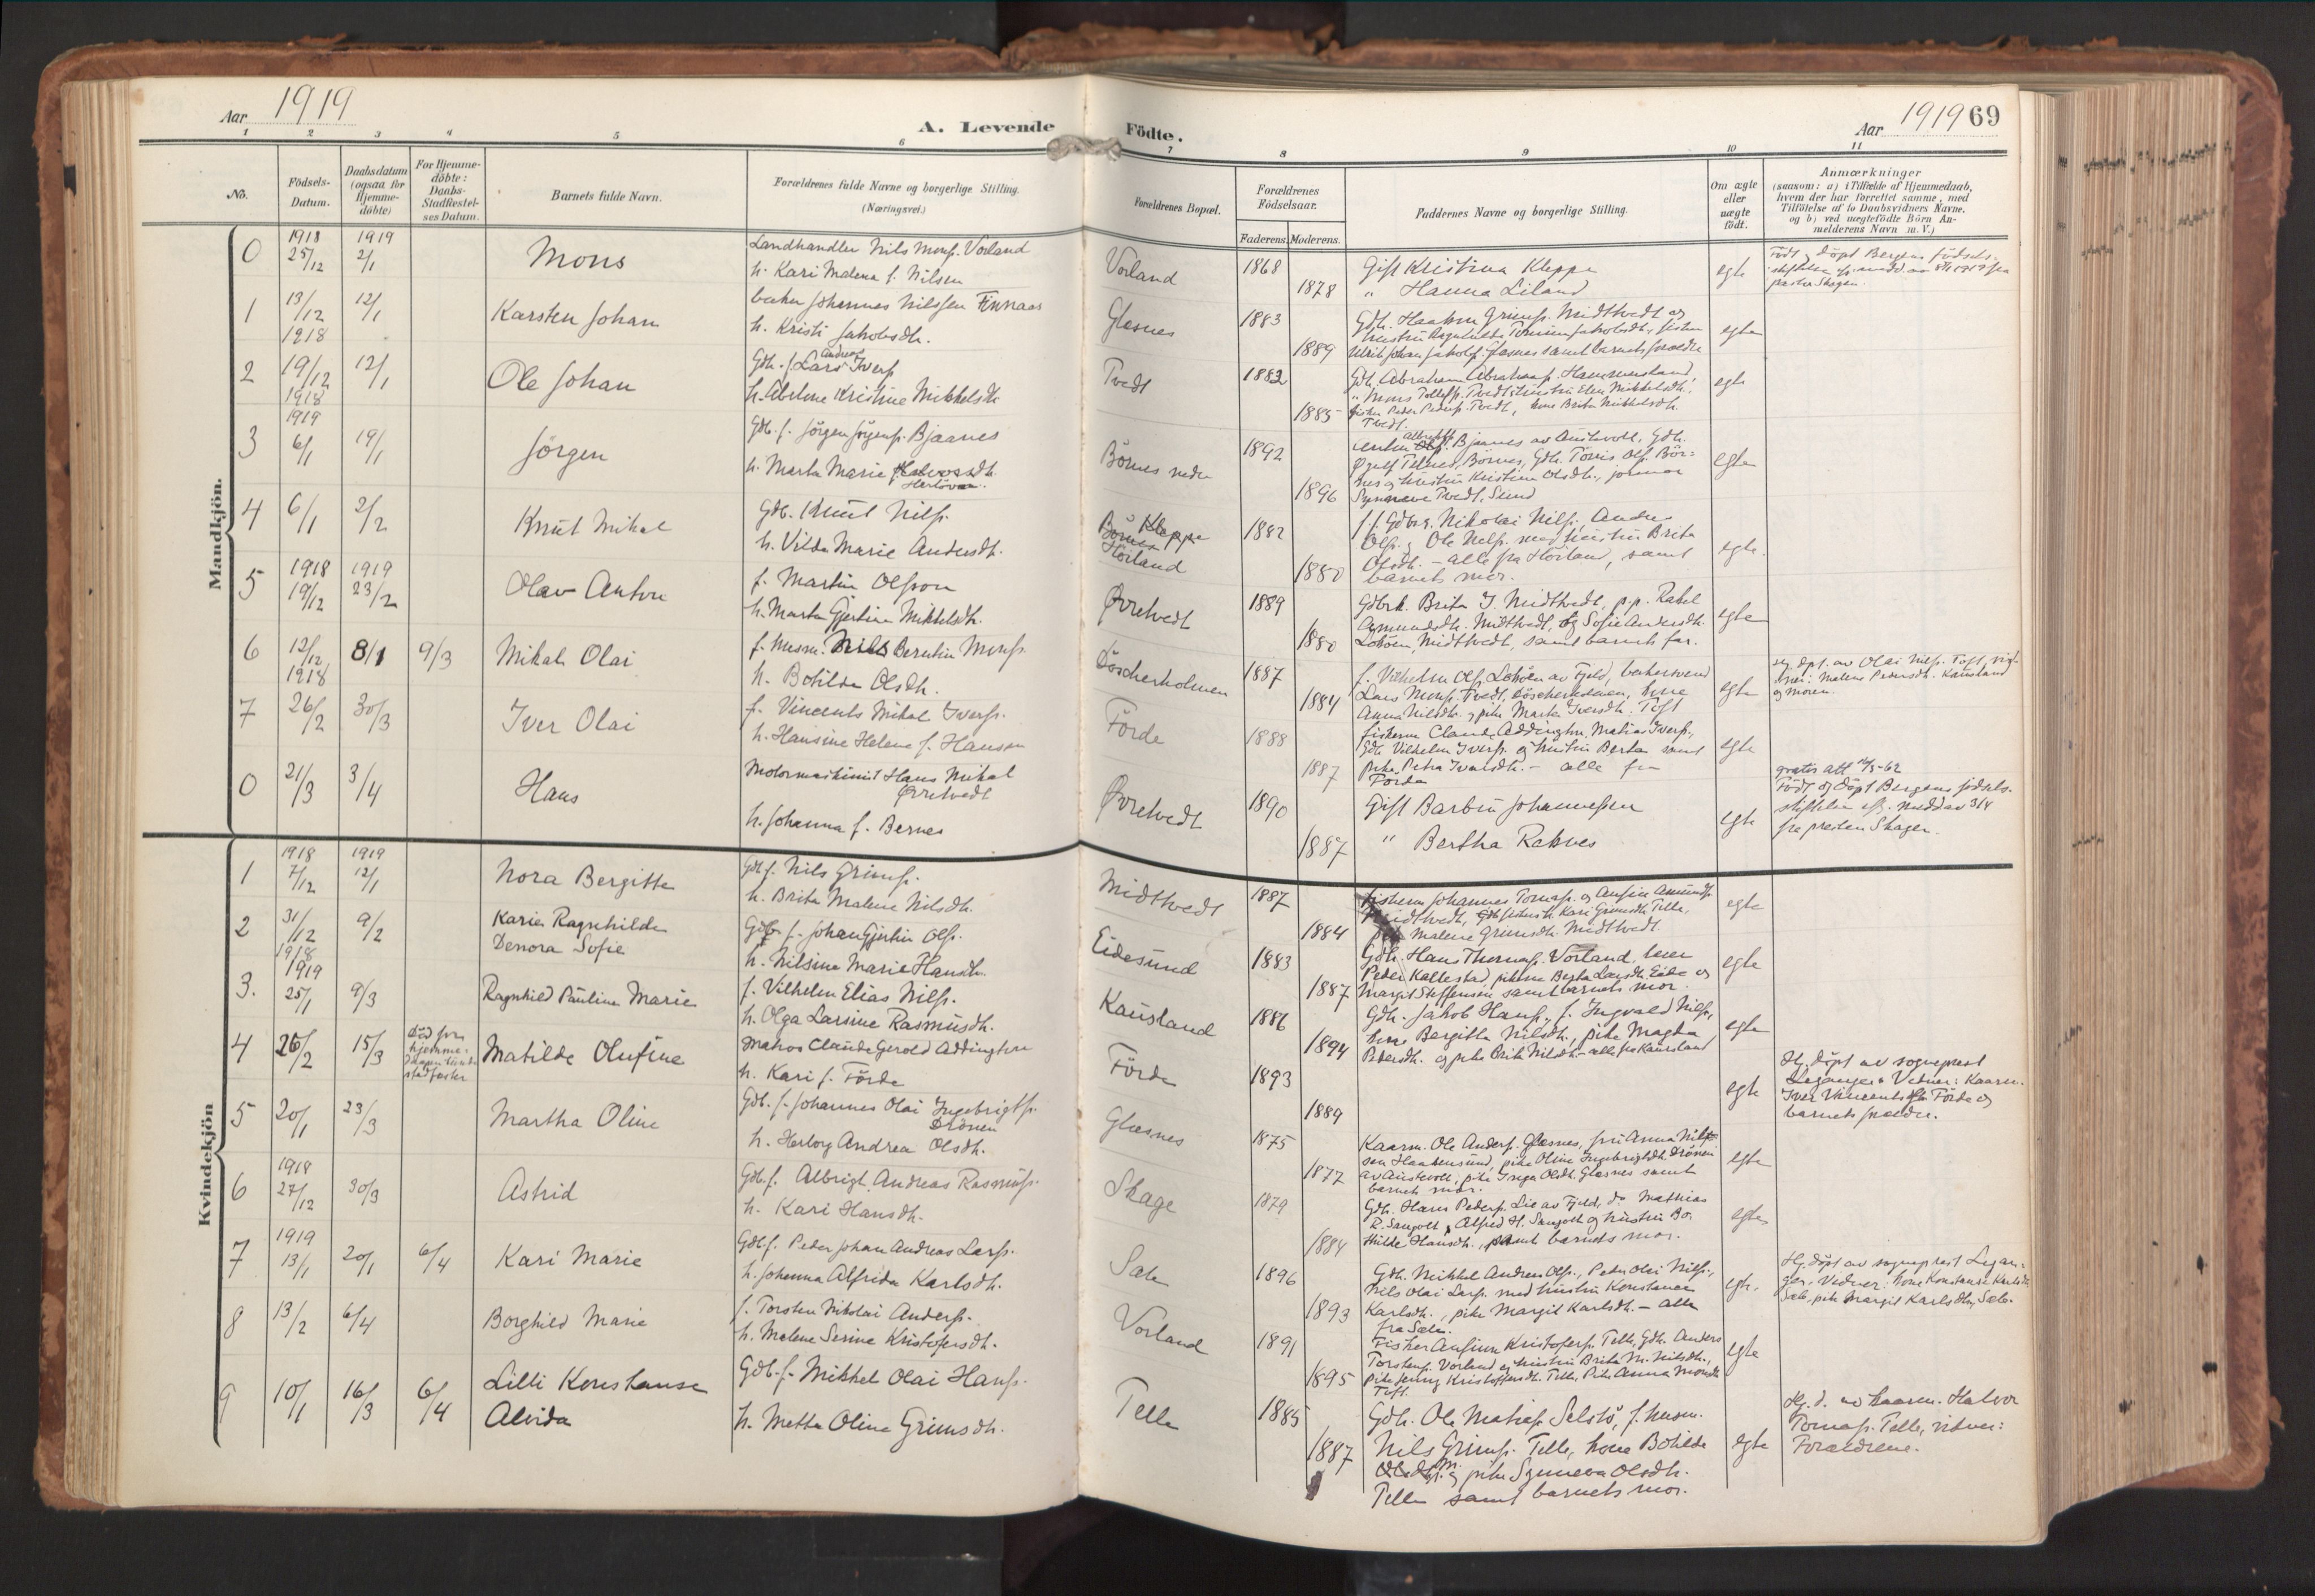 Aar 1919
A. Levende Födte.
Aar 1919 69
1 2 3 4 5 6 7 8 9 10 11
No.
Födsels-
Datum.
Daabsdatum
(ogsaa for
Hjemme-
döbte)
For Hjemme-
döbte:
Daabs-
Stadfæstel-
ses Datum.
Barnets fulde Navn.
Forældrenes fulde Navne og borgerlige Stilling.
(Næringsvei.)
Forældrenes Bopæl.
Forældrenes
Födselsaar.
Faderens. Moderens.
Faddernes Navne og borgerlige Stilling.
Om ægte
eller
uægte
födt.
Anmærkninger
(saasom: a) i Tilfælde af Hjemmedaab,
hvem der har forrettet samme, med
Tilföielse af to Daabsvidners Navne,
og b) ved uægtefödte Börn An-
melderens Navn m. V.)
Mandkjön.
0 1918 25/12 1919 2/1 Mons
Landhandler Nils Monss. Vorland
h. Kari Malena f. Nilsen
Vorland 1868 1878
Gift Kristina Kleppe
" Hanna Liland
egte
Födt og döpt Bergens födsels-
stiftelse
1 13/12 1918 12/1 Karsten Johan
Johannes Nilssen Finnaas
h. Kristi Jakobsdh.
Glesnes 1883 1889
Gdh. Haakon Grimss. Midttvedt og
egte
2 19/12 1918 12/1 Ole Johan
Gdb. f. Lars Andreas Iverss.
h. Abelone Kristine Mikkelsdh.
Tvedt 1882 1885
Gdh. Abraham Abrahamss. Hammersland,
" Mons Tellefss. Tvedt hustru Elen Mikkelsdh.
fisker Peder Pederss. Tvedt, kone Brita Mikkelsdh.
Tvedt.
egte
3 1919 6/1 19/1 Jörgen
Gdb. f. Jörgen Jörgenss. Bjaanes
h. Marta Marie
Börnes nedre 1892 1896
Bjaanes av Austevoll, Gdh.
Börnes, Gdh. Torris Olss. Bör-
nes og hustru Kristine Olsdh., jomfru
Synneve Tvedt, Sund
egte
4 6/1 2/2 Knut Mikal
Gdb. Knut Nilss.
h. Vilda Marie Andersdh.
Börnes Kleppe
Hörland 1882 1880
f. f. Gdbr. Nikolai Nilss., Anders
Olss. og Ole Nilss. med hustru Brita
Olsdh. – alle fra Hörland, samt
barnets mor.
egte.
5 1918 19/12 1919 23/2 Olav Anton
f. Martin Olsson
h. Marta Gjertine Mikkelsdh.
Övretvedt 1889 1880
Gdbrk. Brita J. Midttvedt, p.p. Rakel
Amundsdh. Midttvedt, og Sofie Andersdh.
Loköen, Midttvedt, samt barnets far.
egte
6 12/12 1918 8/1 9/3 Mikal Olai
f. Husm. Nils Berntin Monss.
h. Botilda Olsdh.
Löscherholmen 1887 1884
f. Vilhelm Olss. Loköen av Fjeld,
Lars Monss. Tvedt, Löscherholmen, kone
Anna Nilsdh. og pike Marta Iversdh. Toft
egte
Hj. dpt. av Olai Nilss. Toft, vid-
ner: Malene Pedersdh. Kausland
og moren.
7 26/2 30/3 Iver Olai
f. Vincents Mikal Iverss.
h. Hansine Helene f. Hansen
Förde 1888 1887
fiskerne Claude Addington, Matias Iverss.,
Gdh. Vilhelm Iverss. og hustru Berta samt
pike Petra Iversdh. – alle fra
Förde
egte
0 21/3 3/4 Hans
Motormaskinist Hans Mikal
Övretvedt
h. Johanna f. Bernes
Övretvedt 1890 1887
Gift Barbru Johannessen
" Bertha Raknes
egte
gratis att 16/5-62
Födt og döpt Bergens födsels-
stiftelse eft. medd. av 3/4
fra presten Skagen.
Kvindekjön
1 1918 7/12 1919 12/1 Nora Bergitte
Gdb. f. Nils Grimss.
h. Brita Malene Nilsdh.
Midttvedt 1887 1884
Fiskerne Johannes Tomass. og Ansfin Amunds.
Midttvedt, Kari Grimsdh. Telle,
pike Malene Grimsdh. Midttvedt.
egte
2 31/12 1918 9/2 Karie Ragnhilda
Denora Sofie
Gdb. f. Johan Gjertin Olss.
h. Nilsine Marie Hansdh.
Eidesund 1883 1887
Gdh. Hans Thomass. Vorland, leier
Peder Kallestad, pikerne Berta Larsdh. Eide og
Margit Steffensen samt barnets mor.
egte
3. 1919 25/1 9/3 Ragnhild Pauline Marie
f. Vilhelm Elias Nilss.
h. Olga Larsine Rasmusdh.
Kausland 1886 1894
Gdh. Jakob Hanss., f. Ingvald Nilss.,
kone Bergitta Nilsdh., pike Magda
Pedersdh. og pike Brita Nilsdh. – alle fra Kausland
egte
4 26/2 15/3 död för
hjemme-
daapen kunde
stadfæstes
Matilde Olufine
Matros Claude Gerold Addington
h. Kari f. Förde
Förde 1893 1889
egte
Hj. döpt av sogneprest
Leganger. Vidner: Kaarm.
Iver Vincents Förde og
barnets forældre.
5 20/1 23/3 Martha Oline
Gdb. f. Johannes Olai Ingebrigtss.
Drönen
h. Herborg Andrea Olsdh.
Glesnes 1875 1877
Kaarm. Ole Anderss. Glesnes, fru Anna Nils-
sen Haakensund, pike Oline Ingebrigtsdh. Drönen
av Austevoll, pike Inga Olsdh. Glesnes samt
barnets mor.
egte
6 1918 27/12 30/3 Astrid
Gdb. f. Albrigt Andreas Rasmuss.
h. Kari Hansdh.
Skage 1879 1884
Gdh. Hans Pederss. Lie av Fjeld, do Mathias
R. Sangolt, Alfred H. Sangolt og hustru Bo-
thilde Hansdh., samt barnets mor.
egte
7 1919 13/1 20/1 6/4 Kari Marie
Gdb. f. Peder Johan Andreas Larss.
h. Johanna Alfrida Karlsdh.
Sæle 1896 1893
Gdh. Mikkel Andreas Olss., Peder Olai Nilss.,
Nils Olai Larss. med hustru Konstanse
Karlsdh., pike Margit Karlsdh. – alle
fra Sæle.
egte.
Hj. döpt av sogneprest Legan-
ger. Vidner: kone Konstanse Karlsdh.
Sæle, pike Margit Karlsdh. Sæle.
8 13/2 6/4 Borghild Marie
f. Torsten Nikolai Anderss.
h. Malene Serine Kristofersdh.
Vorland 1891 1895
Fisker Ansfinn Kristoferss. Telle, Gdh. Anders
Torstenss. Vorland og hustru Brita M. Nilsdh.,
pike Jenny Kristoffersdh. Telle, Pike Anna Monsdh.
Toft.
egte
9 10/1 16/3 6/4 Lilli Konstanse
Alvida
Gdb. f. Mikkel Olai Hanss.
h. Metta Oline Grimsdh.
Telle 1885 1887
Gdh. Ole Matiass. Selstö, f. husm.
Nils Grimss. Telle, kone Botilde
Olsdh. og pike Synneva Olsdh.
Telle samt barnets mor.
egte
Hj. d. av kaarm. Halvor
Tomass. Telle, vidner:
Forældrene.